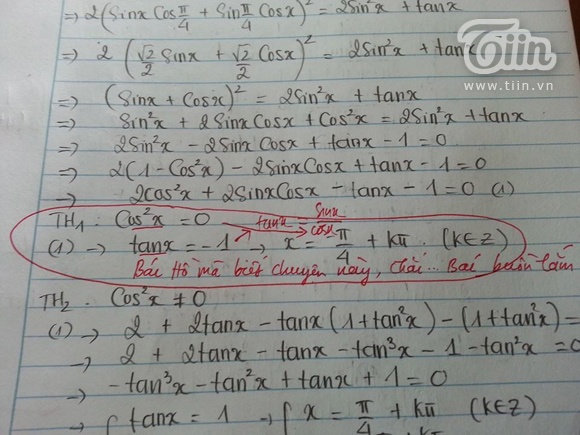 => 2(Sinx Cos π/4 + Sin π/4 Cosx)² = 2Sin²x + tanx
=> 2 (√2/2 Sinx + √2/2 Cosx)² = 2Sin²x + tanx
Tiin
www.tiin.vn
=> (Sinx + Cosx)² = 2Sin²x + tanx
=> Sin²x + 2SinxCosx + Cos²x = 2Sin²x + tanx
=> 2Sin²x - 2SinxCosx + tanx - 1 = 0
=> 2(1 - Cos²x) - 2SinxCosx + tanx - 1 = 0
=> 2cos²x + 2SinxCosx - tanx - 1 = 0 (1)
TH1 : Cos²x = 0 tanx = Sinx/cosx
(1) → tanx = -1 → x = π/4 + kπ . (k∈Z)
Bác Hồ mà biết chuyện này, chắc... Bác buồn lắm
TH2 . Cos²x ≠ 0
(1) → 2 + 2tanx - tanx(1 + tan²x) - (1 + tan²x) =
→ 2 + 2tanx - tanx - tan³x - 1 - tan²x = 0
→ -tan³x - tan²x + tanx + 1 = 0
→ { tanx = 1 → { x = π/4 + kπ (k∈Z)